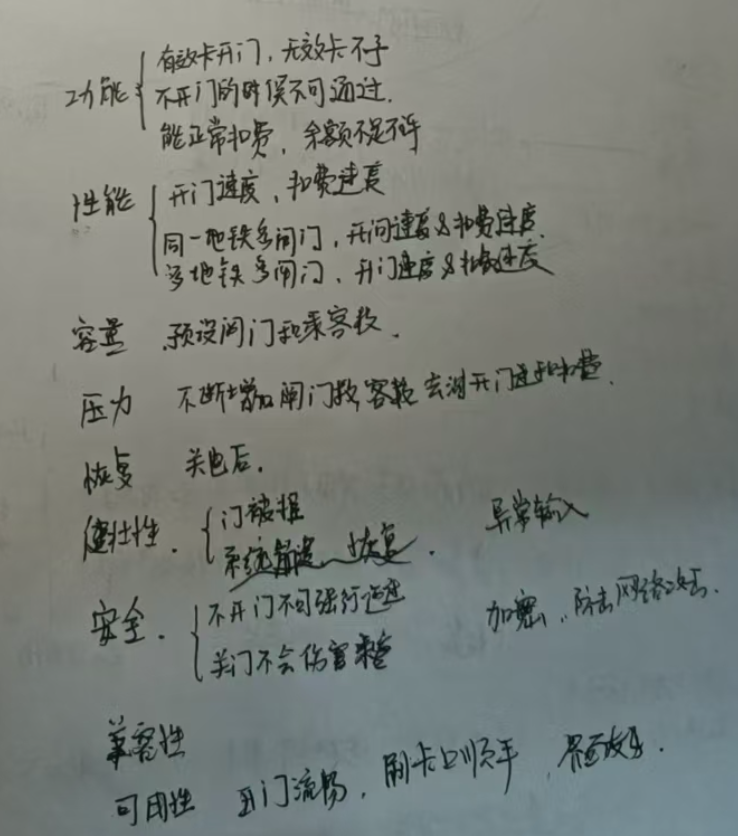 功能 有效卡开门，无效卡不予
不开门的时候不可通过.
能正常扣费，余额不足不许
性能 开门速度，扣费速度
同一地铁多闸门，开闸速度&扣费速度.
多地铁多闸门，开门速度&扣费速度
容量 预设闸门和乘客数.
压力 不断增加闸门数,客数去测开门速和扣费.
恢复 关电后.
健壮性. 门被撞 异常输入
系统 恢复.
安全. 不开门不可强行通过 加密，防击网络攻击.
关门不会伤害乘客
兼容性
可用性 开门流畅，刷卡口顺手，界面友好.